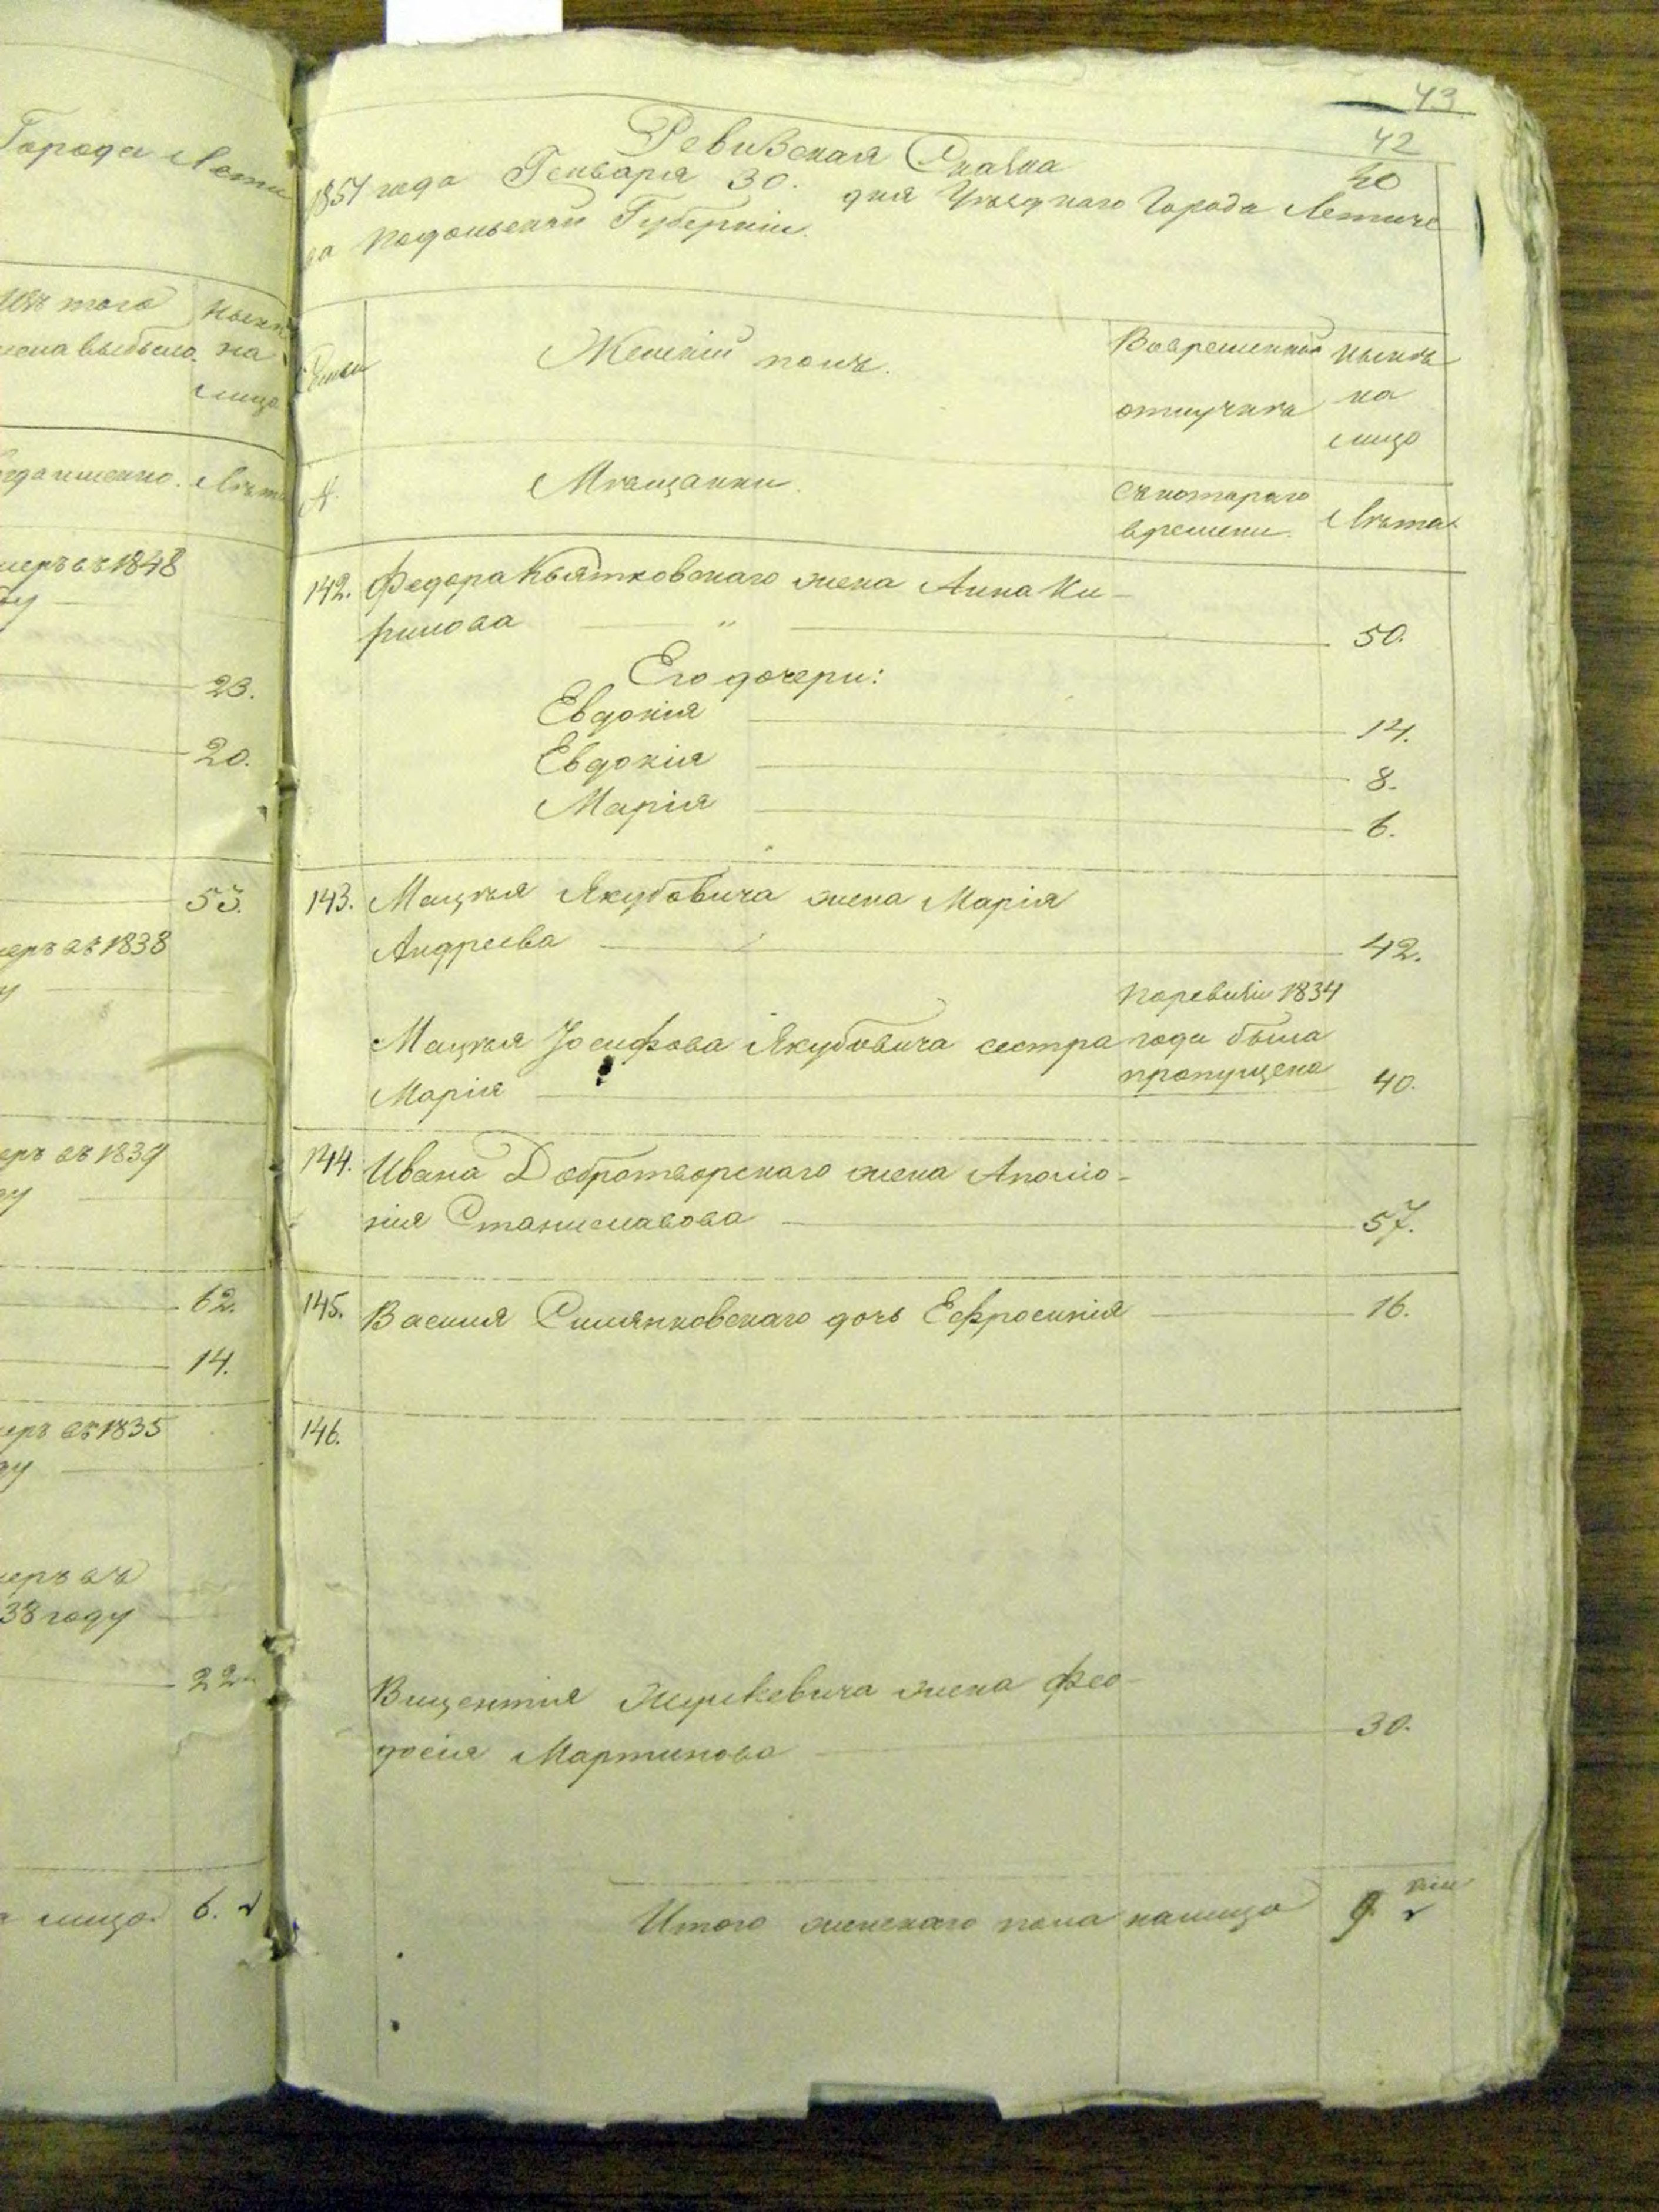 Города Лети
Изъ того
выбыло.
Ныне
на
лицо
Когда именно.
Лѣта
умеръ въ 1848
ду
23.
20.
53.
умеръ въ 1838
у
умеръ въ 1839
ду
62.
14.
умеръ въ 1835
ду
умеръ въ
38 году
22
на лицо. 6.
43
42
Ревизская Сказка
1851 года Генваря 30. дня Уѣзднаго Города Летиче
ва Подольской Губерніи.
Женскій полъ.
Во временной
отлучкѣ
Нынѣ
на
лицо
№.
Мѣщанки.
Съ котораго
времени.
Лѣта
142. Федора Квятковскаго жена Анна Ки-
рилова " 50.
Его дочери:
Евдокія 14.
Евдокія 8.
Марія 6.
143. Мацѣя Якубовича жена Марія
Андреева 42.
По ревизіи 1834
Мацѣя Іосифова Якубовича сестра года была
Марія пропущена 40.
144. Ивана Добротворскаго жена Аполло-
нія Станиславова 57.
145. Василя Симянковскаго дочь Ефросинія 16.
146.
Вицентія Жушкевича жена Фео-
досія Мартинова 30.
Итого женскаго пола на лицо 9